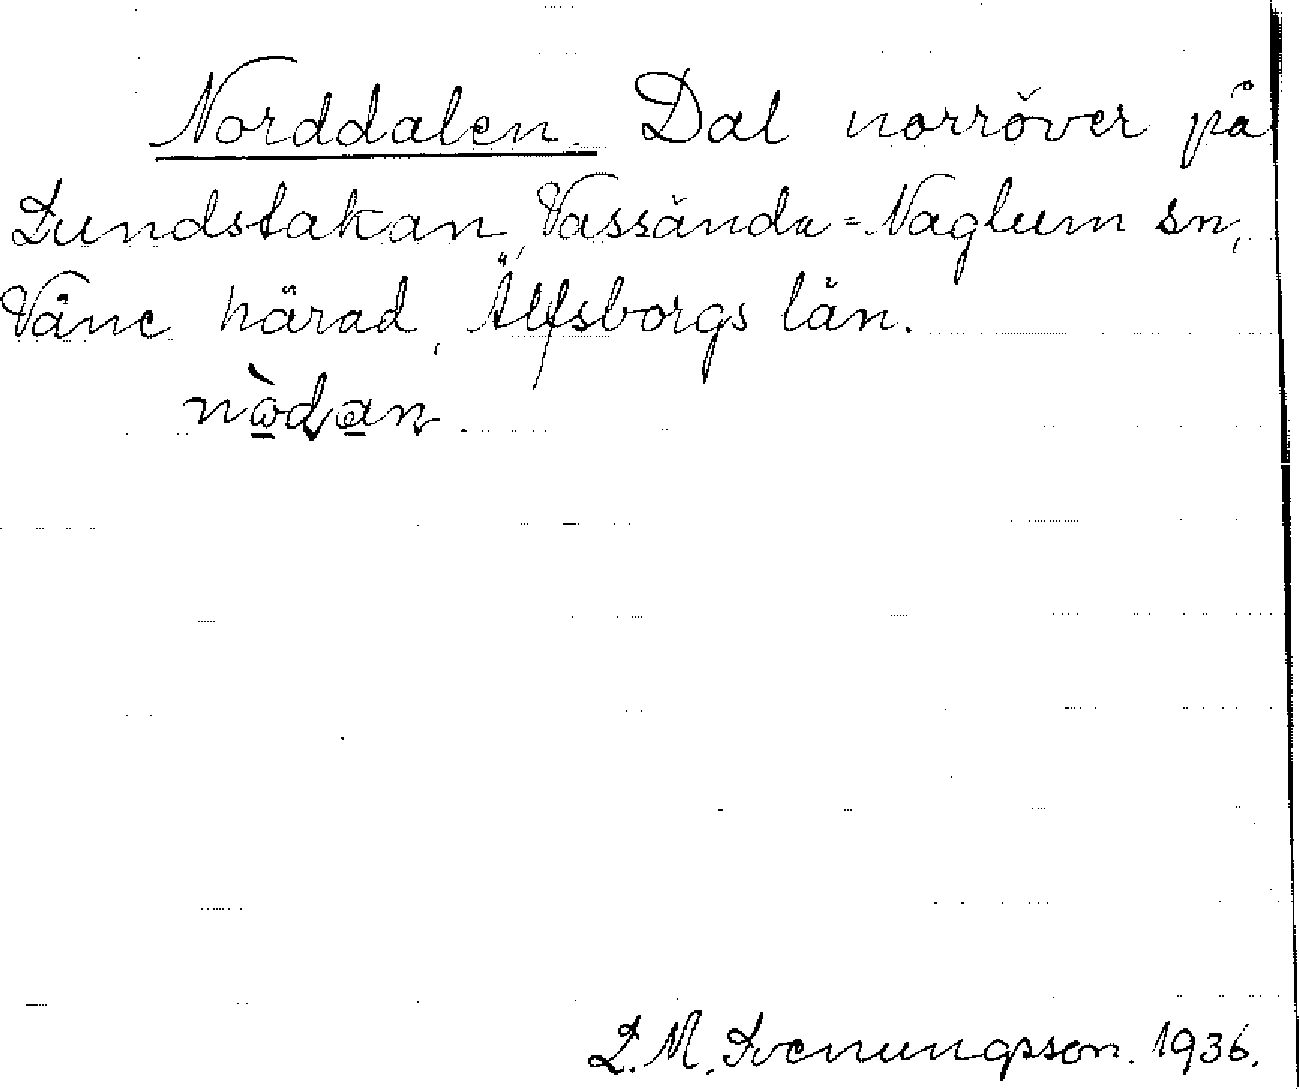 Norddalen. Dal norröver på
Sundstakan, Vassända-Naglum sn,
Väne härad, Älfsborgs län.
L. M. Svenungsson. 1936.